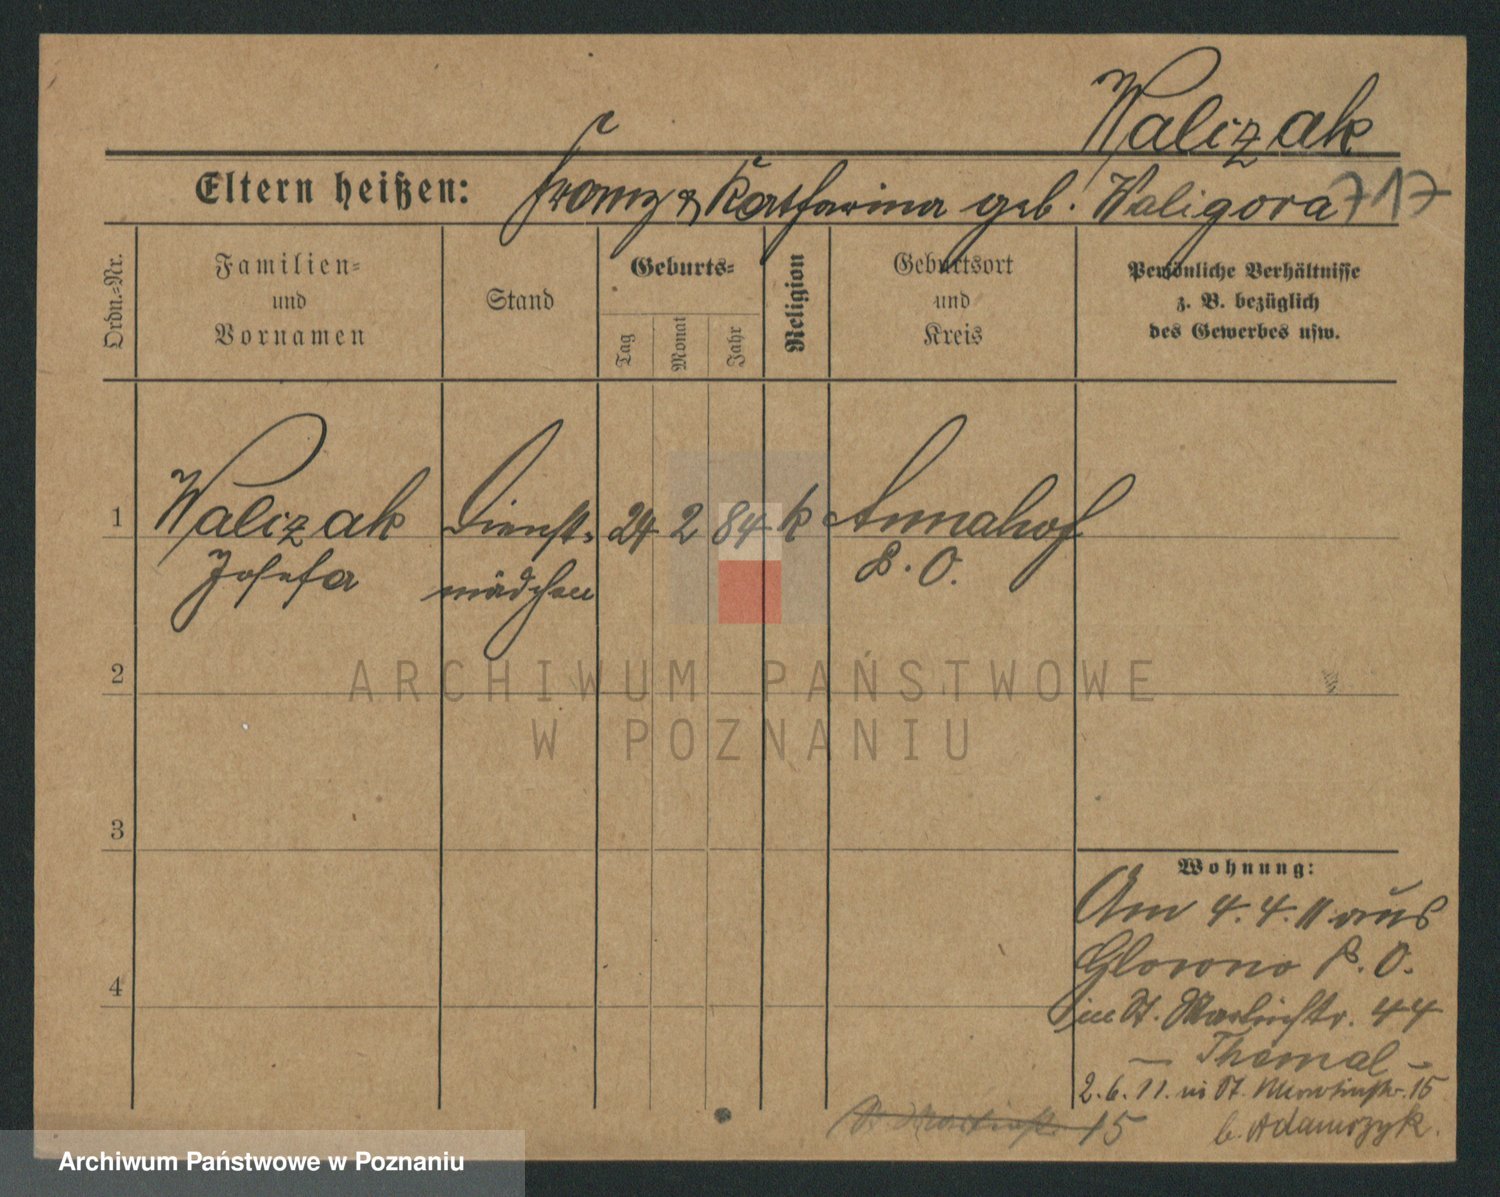 Walczak
Eltern heißen: Franz & Katharina geb. Waligora 717
Ordn.-Nr.
Familien-
und
Vornamen
Stand
Geburts-
Tag
Monat
Jahr
Religion
Geburtsort
und
Kreis
Persönliche Verhältnisse
z. B. bezüglich
des Gewerbes usw.
1 Walczak Dienst- 24 2 84 k Annahof
Josefa mädchen P. O.
2
3
4
Wohnung:
Am 4.4.11 aus
Glowno P. O.
in St. 44
Thomal
2.6.11. in St. Martinstr. 15
b. Adamczyk.
St. Martinstr. 15
ARCHIWUM PAŃSTWOWE
W POZNANIU
Archiwum Państwowe w Poznaniu